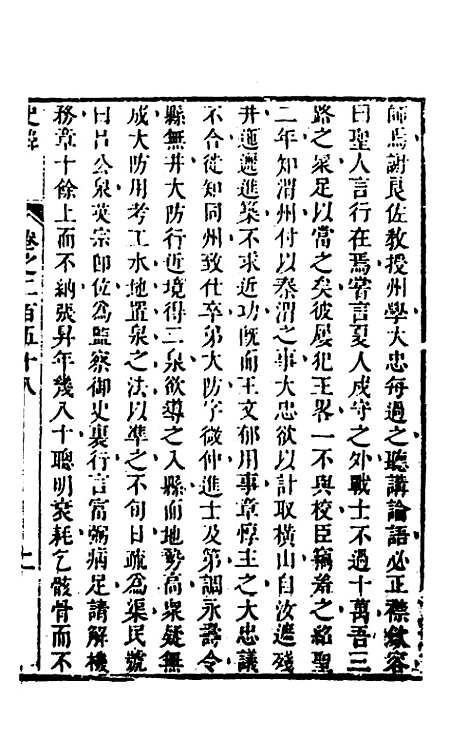 師焉謝良佐教授州學大忠每過之聽講論語必正襟斂容
曰聖人言行在焉嘗言夏人戍守之外戰士不過十萬吾三
路之衆足以當之矣彼屡犯王畧一不與校臣竊羞之紹聖
二年知渭州付以秦渭之事大忠欲以計取橫山自汝遮殘
井迤邐進築不求近功旣而王文郁用事章惇主之大忠議
不合徙知同州致仕卒弟大防字微仲進士及第調永壽令
縣無井大防行近境得二泉欲導之入縣而地勢高衆疑無
成大防用考工水地置泉之法以準之不旬日疏為渠民號
曰呂公泉英宗卽位為監察御史裏行言富弼病足請解機
務章十餘上而不納張昇年幾八十聰明衰耗乞骸骨而不
史緯
卷之二百五十八